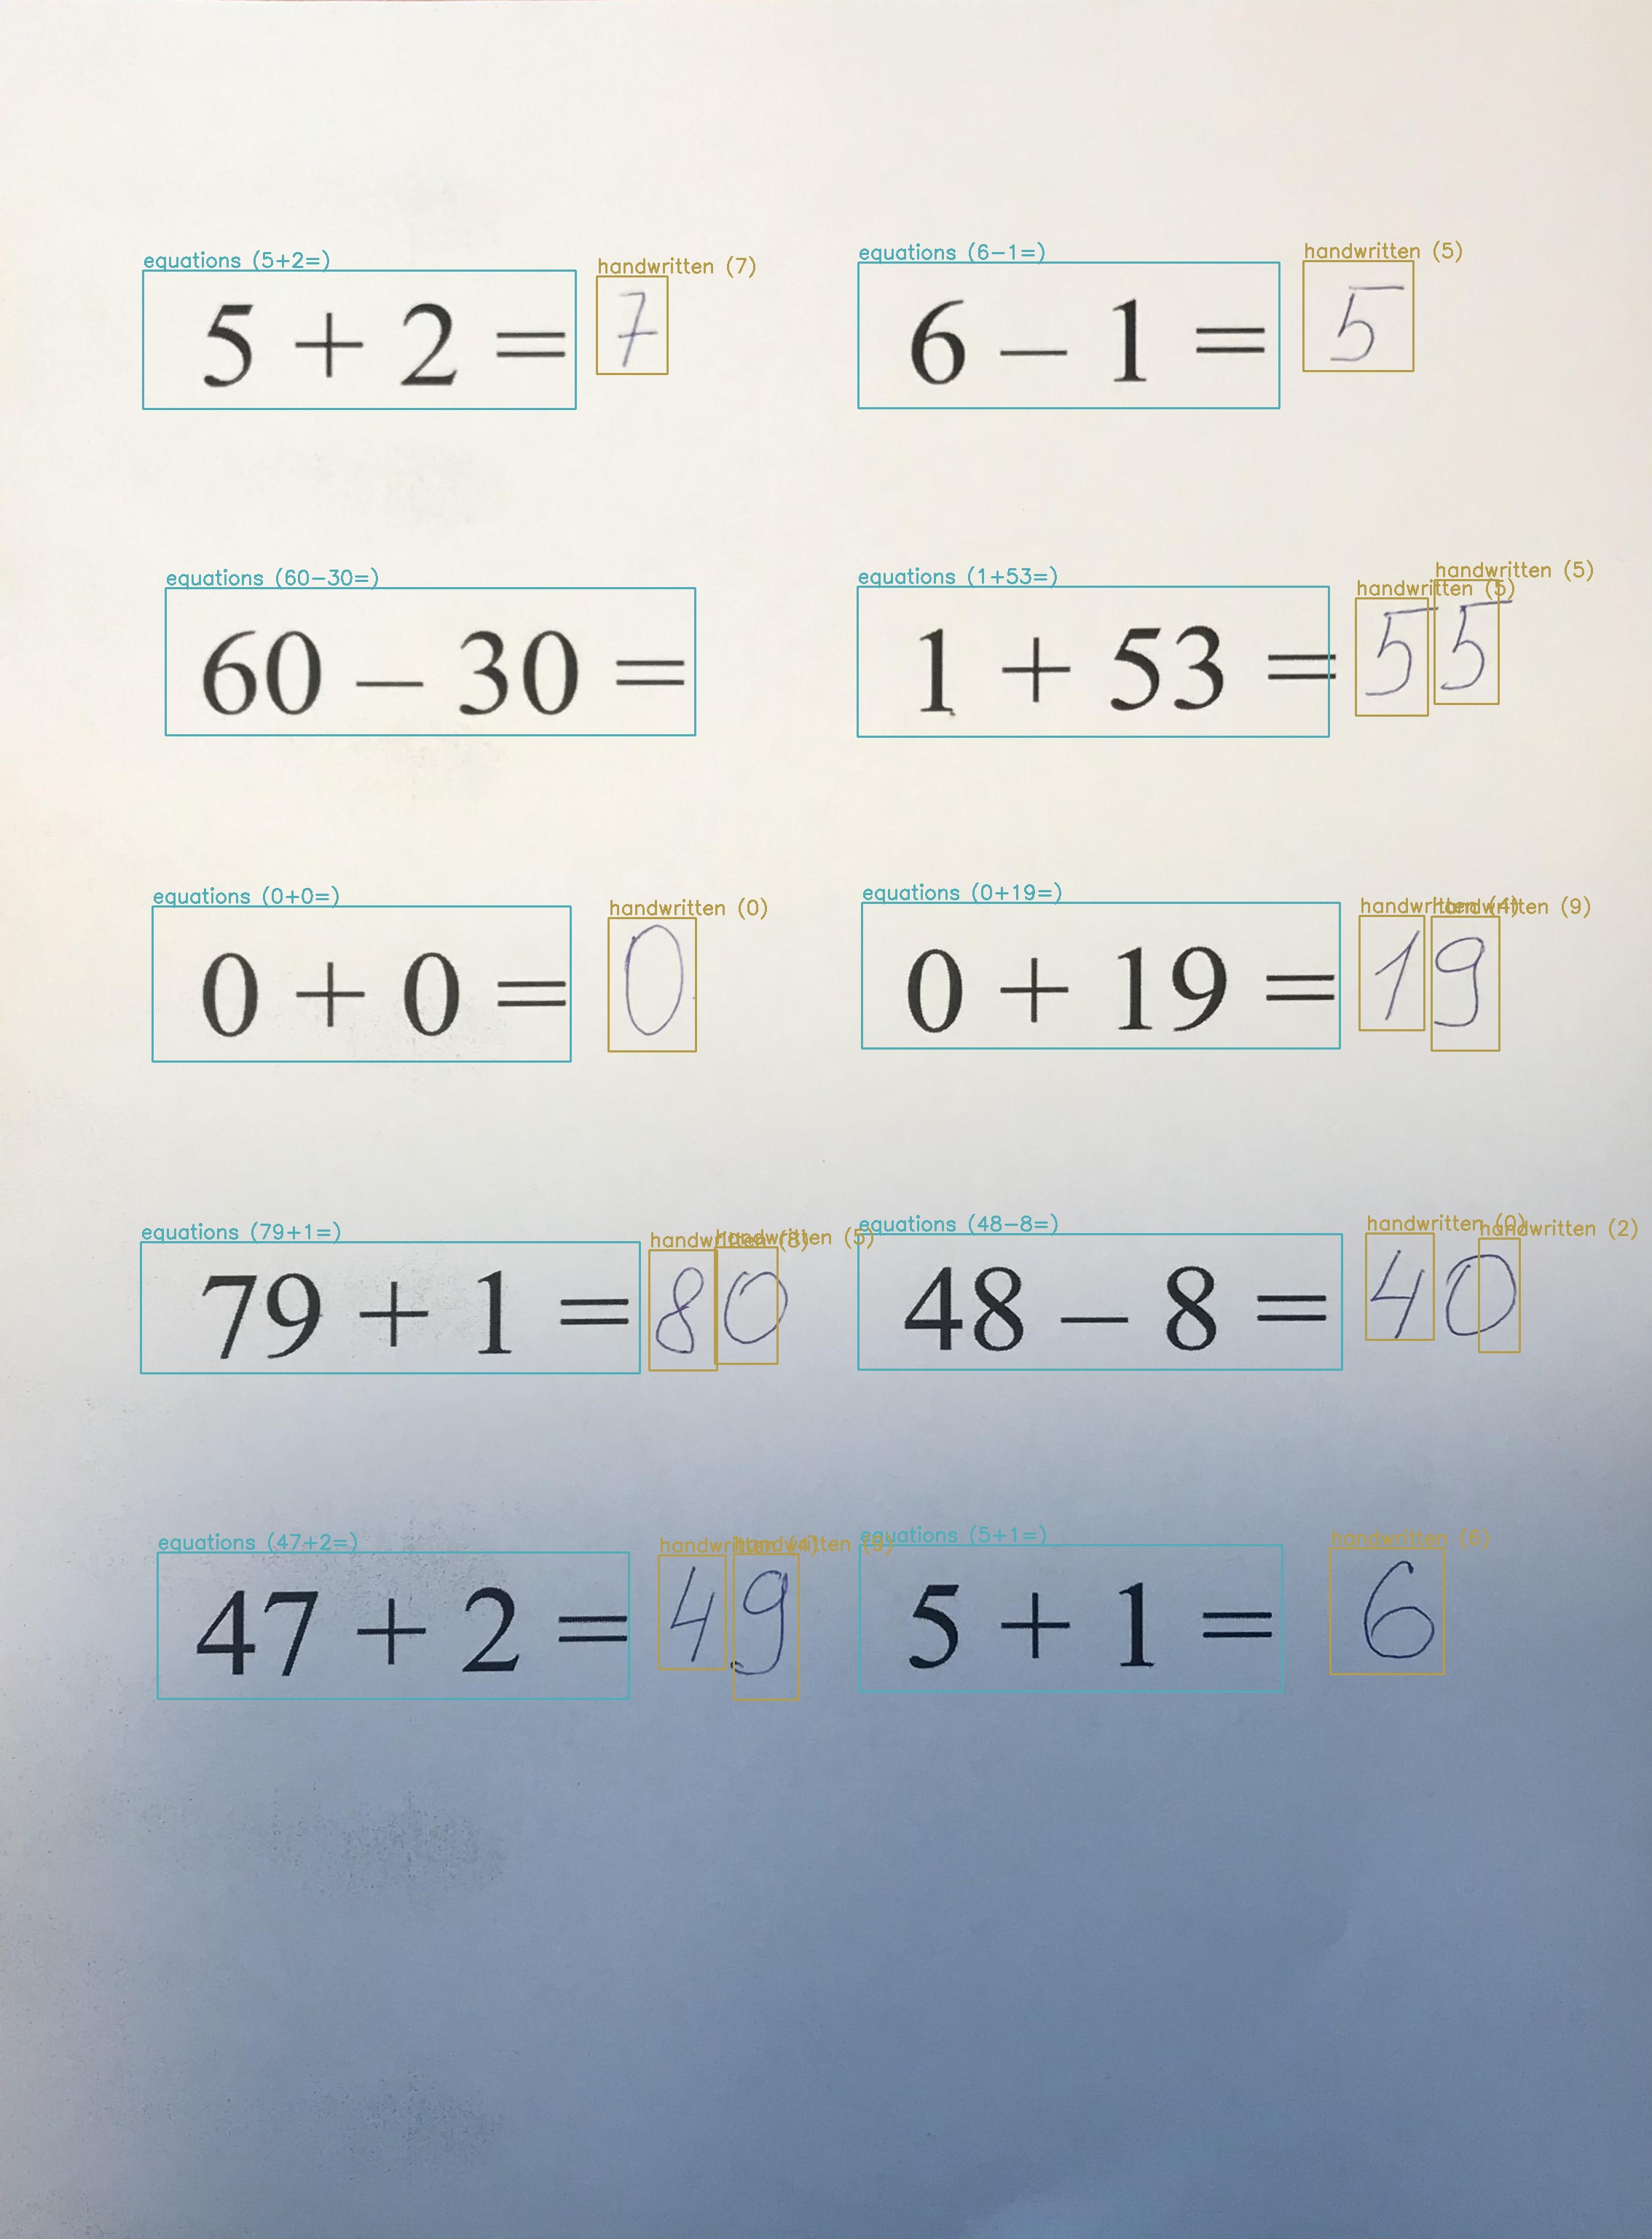 equations (5+2=) handwritten (7) equations (6-1=) handwritten (5)
5 + 2 = 7 6 – 1 = 5
equations (60-30=) equations (1+53=) handwritten (5) handwritten (5)
60 – 30 = 1 + 53 = 55
equations (0+0=) handwritten (0) equations (0+19=) handwritten (4) handwritten (9)
0 + 0 = 0 0 + 19 = 19
equations (79+1=) handwritten (8) handwritten (5) equations (48-8=) handwritten (0) handwritten (2)
79 + 1 = 80 48 – 8 = 40
equations (47+2=) handwritten (4) handwritten (9) equations (5+1=) handwritten (6)
47 + 2 = 49 5 + 1 = 6